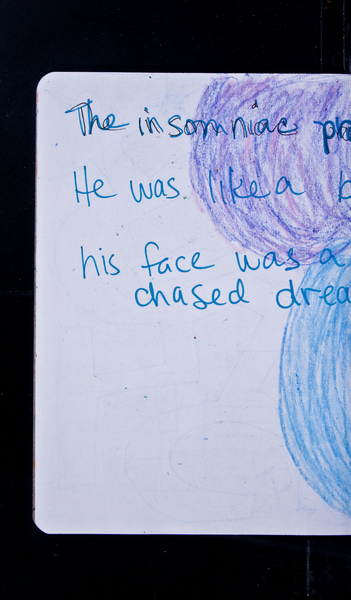 The insomniac
He was like a
his face was a
chased